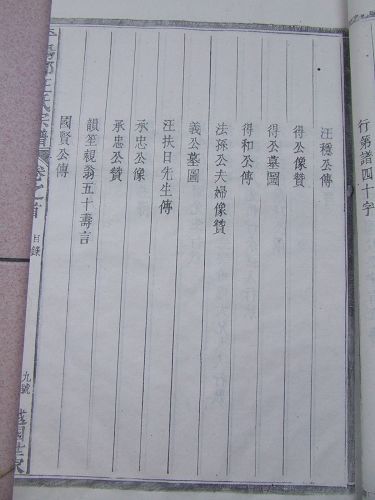 行第譜四十字
汪穩公傳
得公像贊
得公墓圖
得和公像贊
法孫公夫婦像贊
義公墓圖
汪扶日先生傳
承忠公像
承忠公贊
韻笙親翁五十壽言
國賢公傳
汪氏宗譜
卷之首
目錄
九號
越國世家